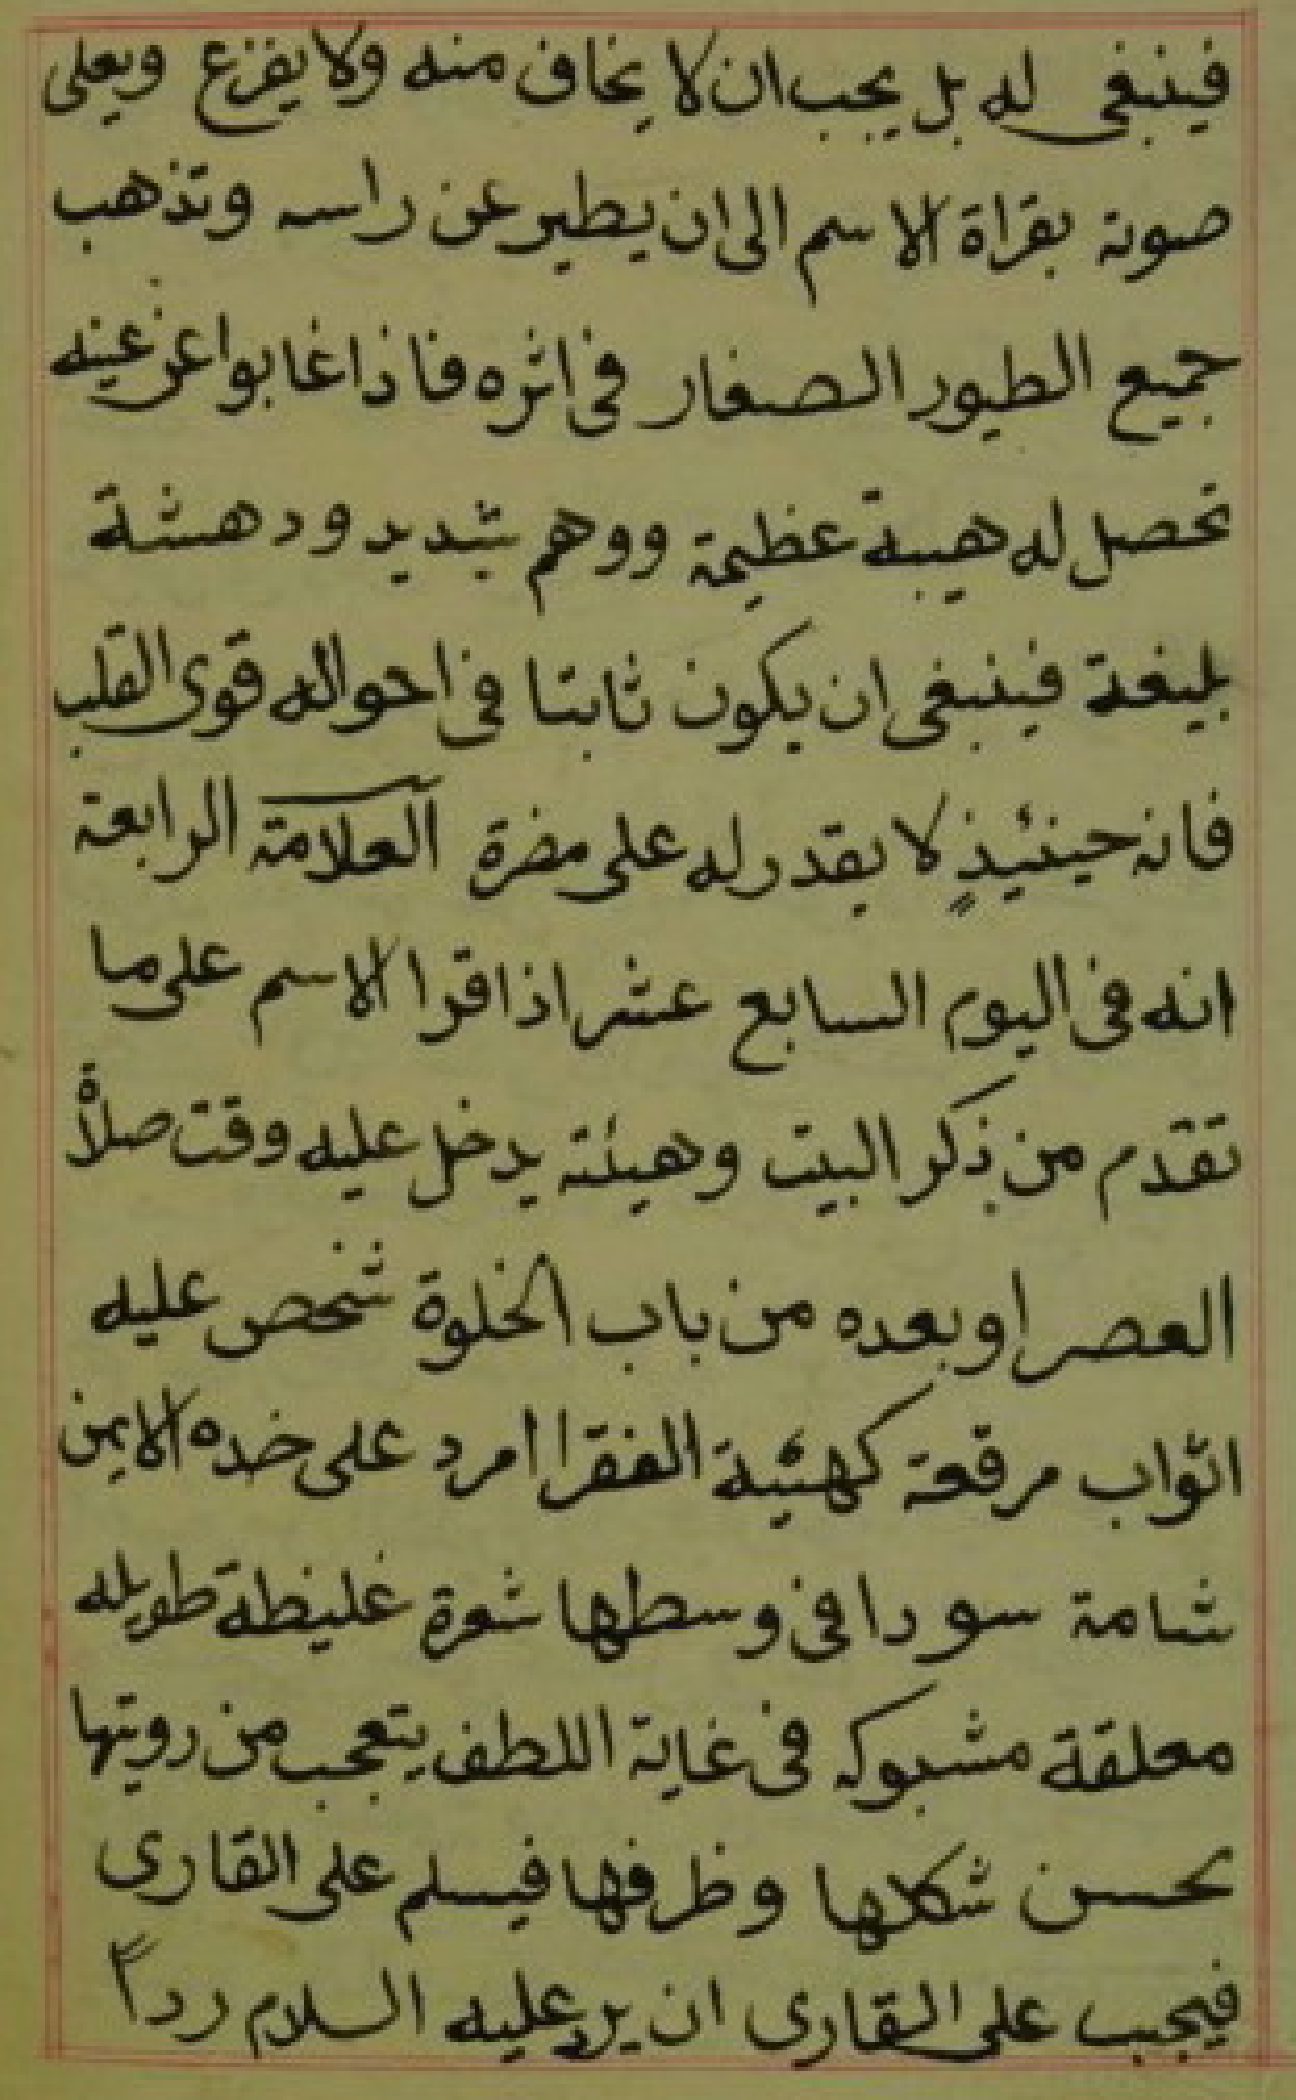 فينبغى له بل يجب ان لا يخاف منه ولا يفزع ويعلى
صوته بقراة الاسم الى ان يطير عن راسه وتذهب
جميع الطيور الصغار فى اثره فاذا غابوا عن عينه
تحصل له هيبة عظيمة ووهم شديد ودهشة
بليغة فينبغى ان يكون ثابتا فى احواله قوى القلب
فانه حينئيذٍ لا يقدر له على مضرة العلامة الرابعة
انه فى اليوم السابع عشر اذا قرا الاسم على ما
تقدم من ذكر البيت وهيئته يدخل عليه وقت صلاة
العصر او بعده من باب الخلوة شخص عليه
اثواب مرقعة كهئية الفقرا امرد على خده الايمن
شامة سودا فى وسطها شعرة غليظة طويله
معلقة مشبوكه فى غاية اللطف يتعجب من رويتها
لحسن شكلها وظرفها فيسلم على القارى
فيجب على القارى ان يرد عليه السلام ردا